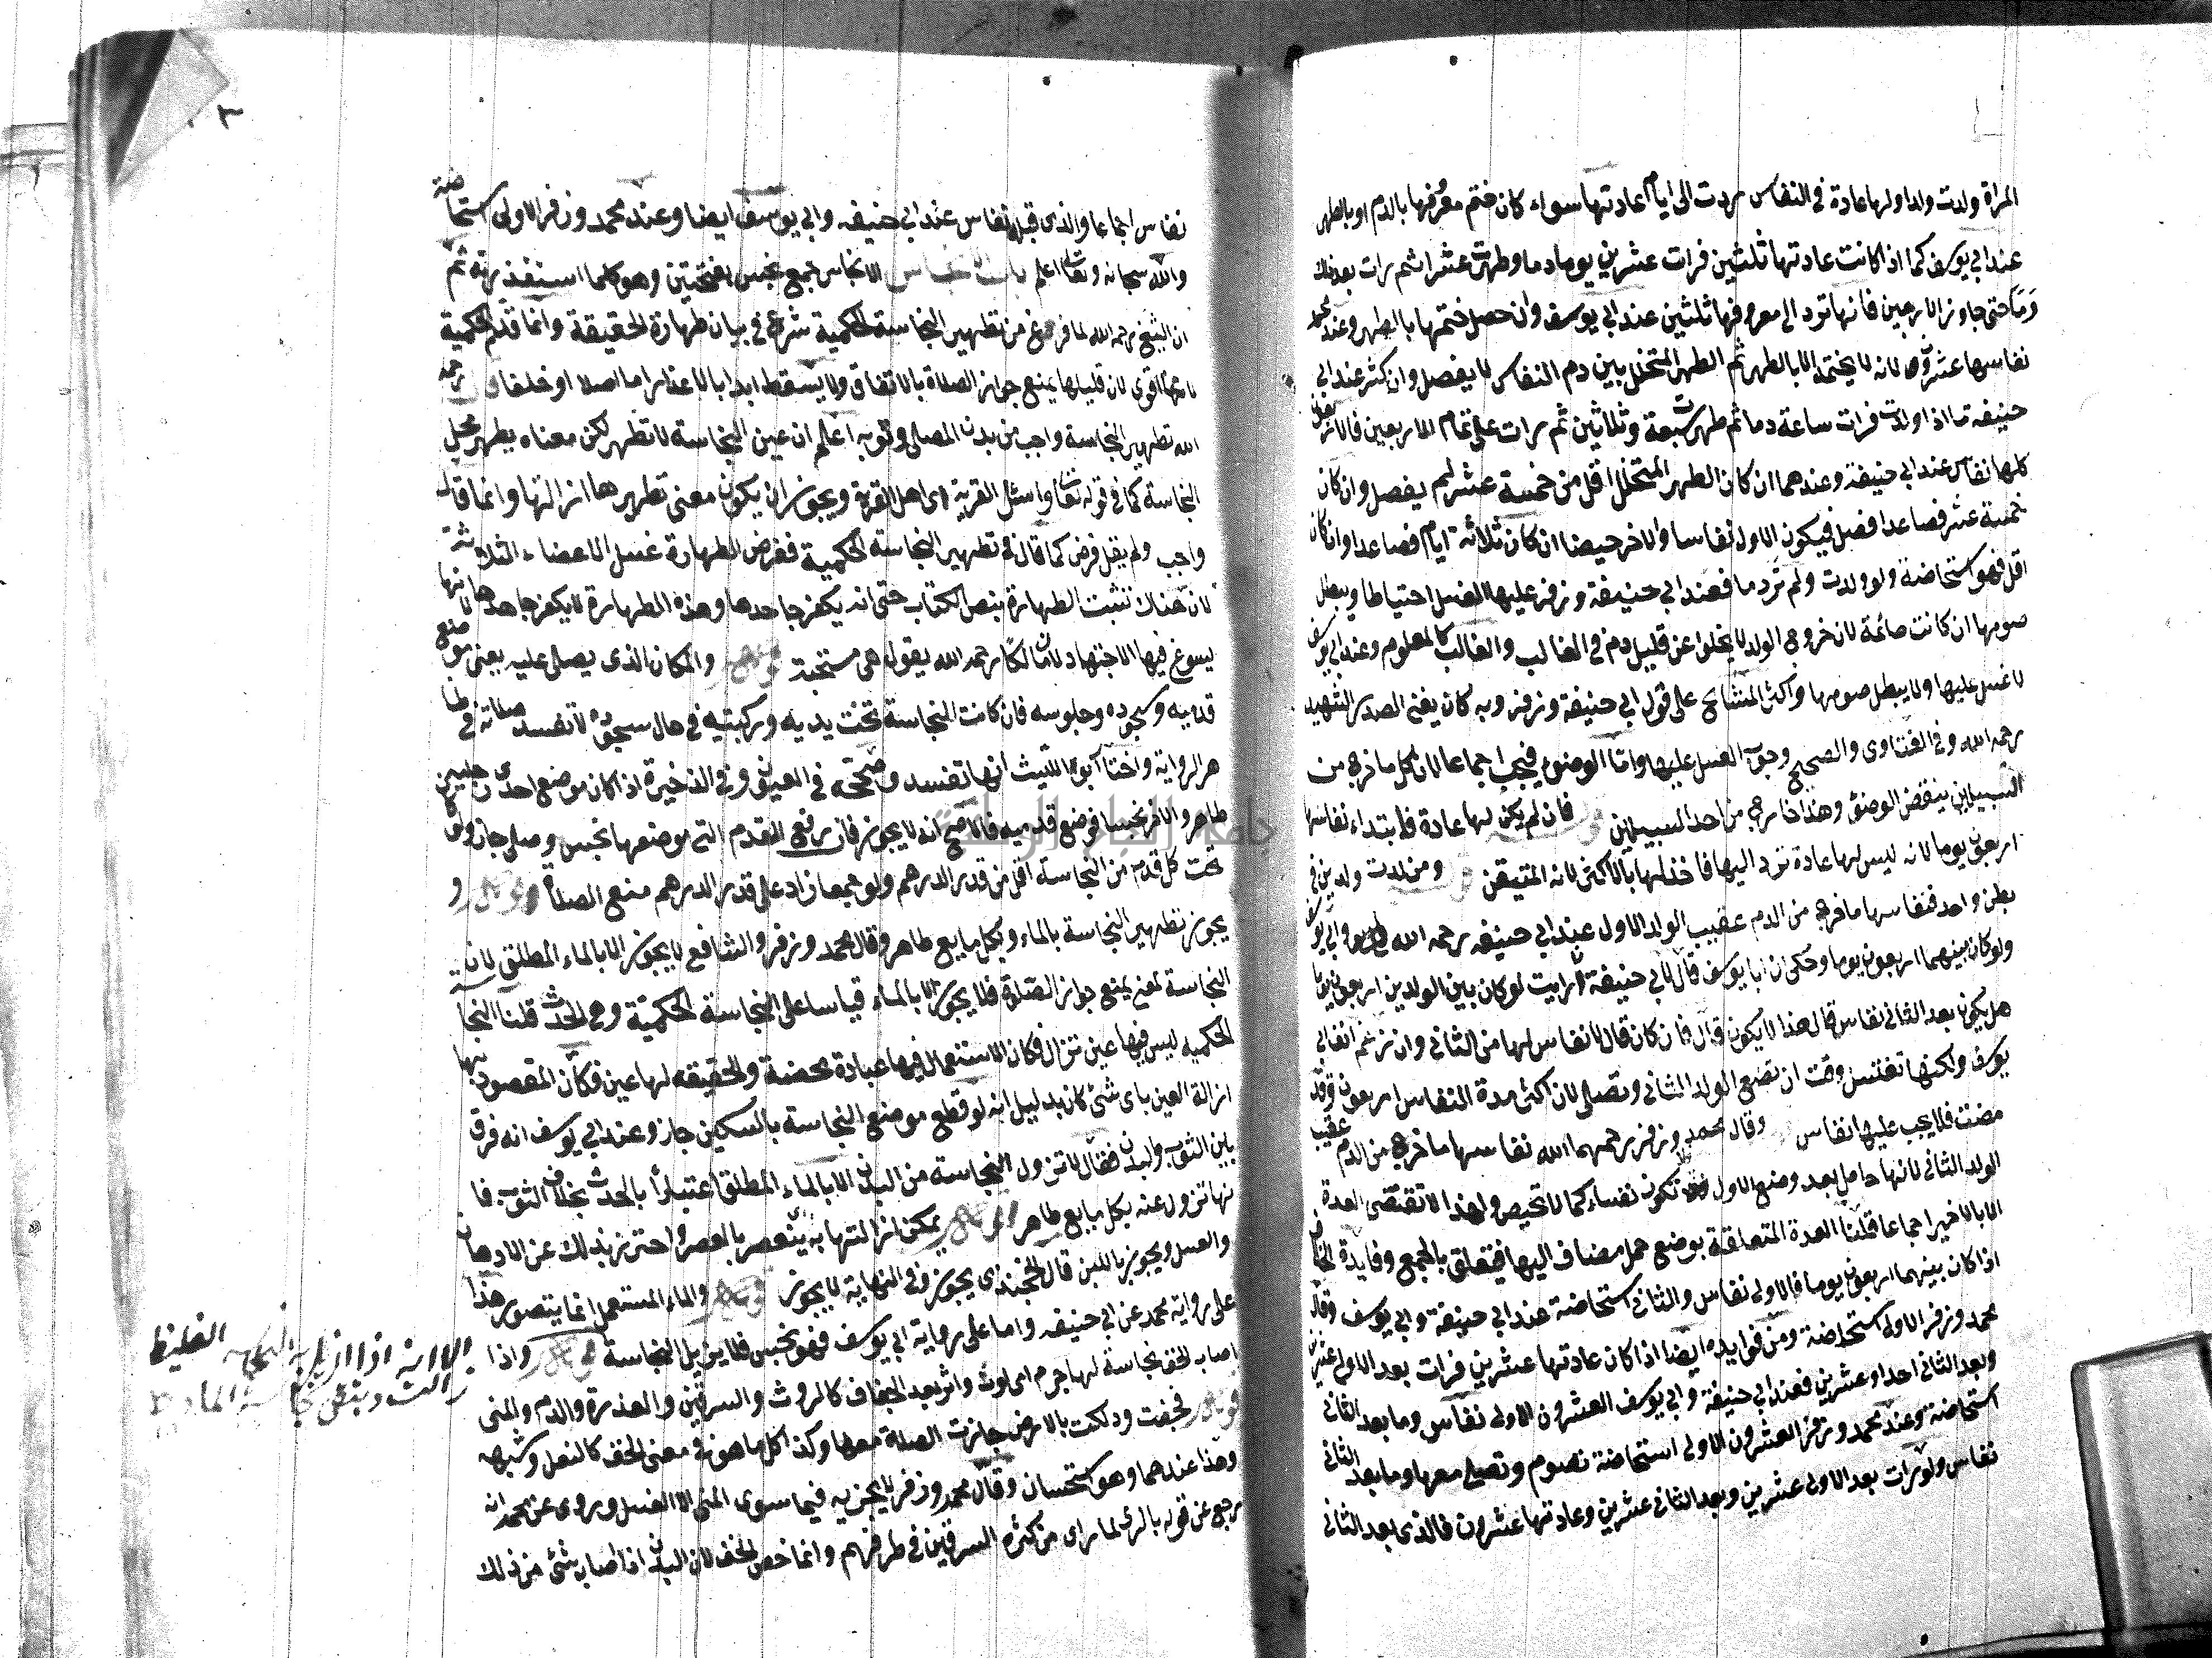 المراة ولدت ولدا ولها عادة في النفاس ردت الى ايام عادتها سواء كان ختم معروفها بالدم او بالطهر
عند ابي يوسف كما اذا كانت عادتها ثلثين فرات عشرين يوما دما وطهرت عشرا ثم رات بعد ذلك
دما حتى جاوز الاربعين فانها ترد الى معروفها ثلثين عند ابي يوسف وان حصل ختمها بالطهر وعند محمد
نفاسها عشرون لانه لا يختم الا بالطهر ثم الطهر المتخلل بين دم النفاس لا يفصل وان كثر عند ابي
حنيفة اذا ولدت فرات ساعة دما ثم طهرت سبعة وثلاثين ثم رات على تمام الاربعين فالاربعون
كلها نفاس عند ابي حنيفة وعندهما ان كان الطهر المتخلل اقل من خمسة عشر لم يفصل وان كان
خمسة عشر فصاعدا فصل فيكون الاول نفاسا والاخر حيضا ان كان ثلاثة ايام فصاعدا وان كان
اقل فهو استحاضة ولو ولدت ولم تر دما فعند ابي حنيفة وزفر عليها الغسل احتياطا ويبطل
صومها ان كانت صائمة لان خروج الولد لا يخلو عن قليل دم في الغالب والغالب كالمعلوم وعند ابي يوسف
لا غسل عليها ولا يبطل صومها واكثر المشايخ على قول ابي حنيفة وزفر وبه كان يفتي الصدر الشهيد
رحمه الله وفي الفتاوى والصحيح وجوب الغسل عليها واما الوضوء فيجب اجماعا لان كل ما خرج من
السبيلين ينقض الوضوء وهذا خارج من احد السبيلين فان لم يكن لها عادة فابتداء نفاسها
اربعون يوما لانه ليس لها عادة ترد اليها فاخذ لها بالاكثر لانه المتيقن ومن ولدت ولدين في
بطن واحد فنفاسها ما خرج من الدم عقيب الولد الاول عند ابي حنيفه رحمه الله وابي يوسف
ولو كان بينهما اربعون يوما وحكي ان ابا يوسف قال لابي حنيفة ارايت لو كان بين الولدين اربعون يوما
هل يكون بعد الثاني نفاس قال هذا لا يكون قال فان كان قال لا نفاس لها من الثاني وان رغم انف ابي
يوسف ولكنها تغتسل وقت ان تضع الولد الثاني وتصلي لان اكثر مدة النفاس اربعون وقد
مضت فلا يجب عليها نفاس وقال محمد وزفر رحمهما الله نفاسها ما خرج من الدم عقيب
الولد الثاني لانها حامل بعد وضع الاول فلا تكون نفساء كما لا تحيض ولهذا لا تنقضي العدة
الا بالاخير اجماعا قلنا العدة المتعلقة بوضع حمل مضاف اليها فتعلق بالجمع وفايدة الخلاف
اذا كان بينهما اربعون يوما فالاولى نفاس والثاني استحاضة عند ابي حنيفة وابي يوسف وقال
محمد وزفر الاولى استحاضة ومن فوايده ايضا اذا كان عادتها عشرين فرات بعد الاول عشرين
وبعد الثاني احدا وعشرين فعند ابي حنيفة وابي يوسف العشرون الاولى نفاس وما بعد الثاني
استحاضة وعند محمد وزفر العشرون الاولى استحاضة تصوم وتصلي معها وما بعد الثاني
نفاس ولو رات بعد الاول عشرين وبعد الثاني عشرين وعادتها عشرون فالذي بعد الثاني
نفاس اجماعا والذي قبله نفاس عند ابي حنيفه وابي يوسف ايضا وعند محمد وزفر الاولى استحاضة
والله سبحانه وتعالى اعلم باب الانجاس الانجاس جمع نجس بفتحتين وهو كلما استقذرته ثم
ان الشيخ رحمه الله لما فرغ من تطهير النجاسة الحكمية شرع في بيان طهارة الحقيقة وانما قدم الحكمية
لانها اقوى لان قليلها يمنع جواز الصلاة بالاتفاق ولا يسقط ابدا بالاعذار اما اصلا او خلفا قال رحمه
الله تطهير النجاسة واجب من بدن المصلي وثوبه اعلم ان عين النجاسة لا تطهر لكن معناه يطهر محل
النجاسة كما في قوله تعالى واسئل القرية اي اهل القرية ويجوز ان يكون معنى تطهيرها ازالتها وانما قال
واجب ولم يقل فرض كما قال في تطهير النجاسة الحكمية ففرض الطهارة غسل الاعضاء الثلاثة
لان هناك تثبت الطهارة بنص الكتاب حتى انه يكفر جاحدها وهذه الطهارة لا يكفر جاحدها لانها
يسوغ فيها الاجتهاد لان مالكا رحمه الله يقول هي مستحبة والمكان الذي يصلي عليه يعني موضع
قدميه وسجوده وجلوسه فان كانت النجاسة تحت يديه وركبتيه في حال سجوده لا تفسد صلاته في ظا
هر الرواية واختار ابو الليث انها تفسد وصححه في العيون وفي الذخيرة اذا كان موضع احدى رجليه
طاهر والاخر نجسا فوضع قدميه فالاصح انه لا يجوز فان رفع القدم التي موضعها نجس وصلى جاز ولو كان
تحت كل قدم من النجاسة اقل من قدر الدرهم ولو جمعا زاد على قدر الدرهم منع الصلاة و
يجوز تطهير النجاسة بالماء وبكل مايع طاهر وقال محمد وزفر والشافعي لا يجوز الا بالماء المطلق لان
النجاسة لمعنى يمنع جواز الصلاة فلا يجوز الا بالماء قياسا على النجاسة الحكمية وهي الحدث قلنا النجا
الحكميه ليس فيها عين تزال فكان الاستعمال فيها عبادة محضة والحقيقه لها عين فكان المقصود بها
ازالة العين باي شئ كان بدليل انه لو قطع موضع النجاسة بالسكين جاز وعند ابي يوسف انه فرق
بين الثوب والبدن فقال لا تزول النجاسة من البدن الا بالماء المطلق اعتبارا بالحدث بخلاف الثوب فا
نها تزول عنه بكل مايع طاهر يمكن ازالتها به ينعصر بالعصر واحترز بذلك عن الادهان
والعسل ويجوز باللبن قال الخجندي يجوز وفي النهاية لا يجوز والماء المستعمل انما يتصور هذا
على رواية محمد عن ابي حنيفه واما على رواية ابي يوسف فهو نجس فلا يزيل النجاسة واذا
اصاب الخف نجاسة لها جرم اي لون واثر بعد الجفاف كالروث والسرقين والعذرة والدم والمني
فجفت ودلكت بالارض جازت الصلاة معها وكذا كل ما هو في معنى الخف كالنعل وشبهه
وهذا عندهما وهو استحسان وقال محمد وزفر لا يجزيه فيما سوى المني الا الغسل وروي عن محمد انه
رجع عن قوله بالري لما راى من كثرة السرقين في طرقهم وانما خص الخف لان البدن اذا اصابه شئ من ذلك
اذا ازيل به النجاسه الغليظ
زالت وبقي نجاسة الماء